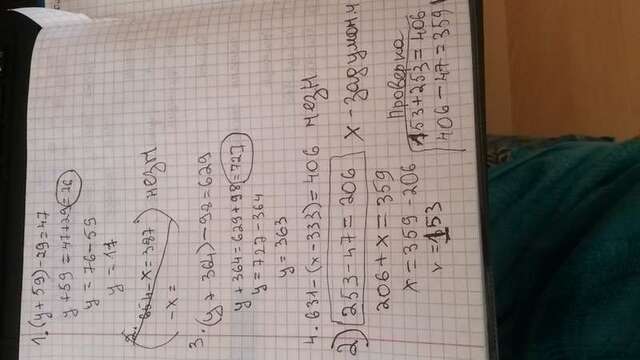 1. (y + 59) - 29 = 47
y + 59 = 47 + 29 = 76
y = 76 - 59
y = 17
2. 854 - x = 387 незн
- x =
3. (y + 364) - 98 = 629
y + 364 = 629 + 98 = 727
y = 727 - 364
y = 363
4. 631 - (x - 333) = 406 незн
2) 253 - 47 = 206 x - задумон. ч
206 + x = 359
x = 359 - 206
x = 153
Проверка
153 + 253 = 406
406 - 47 = 359